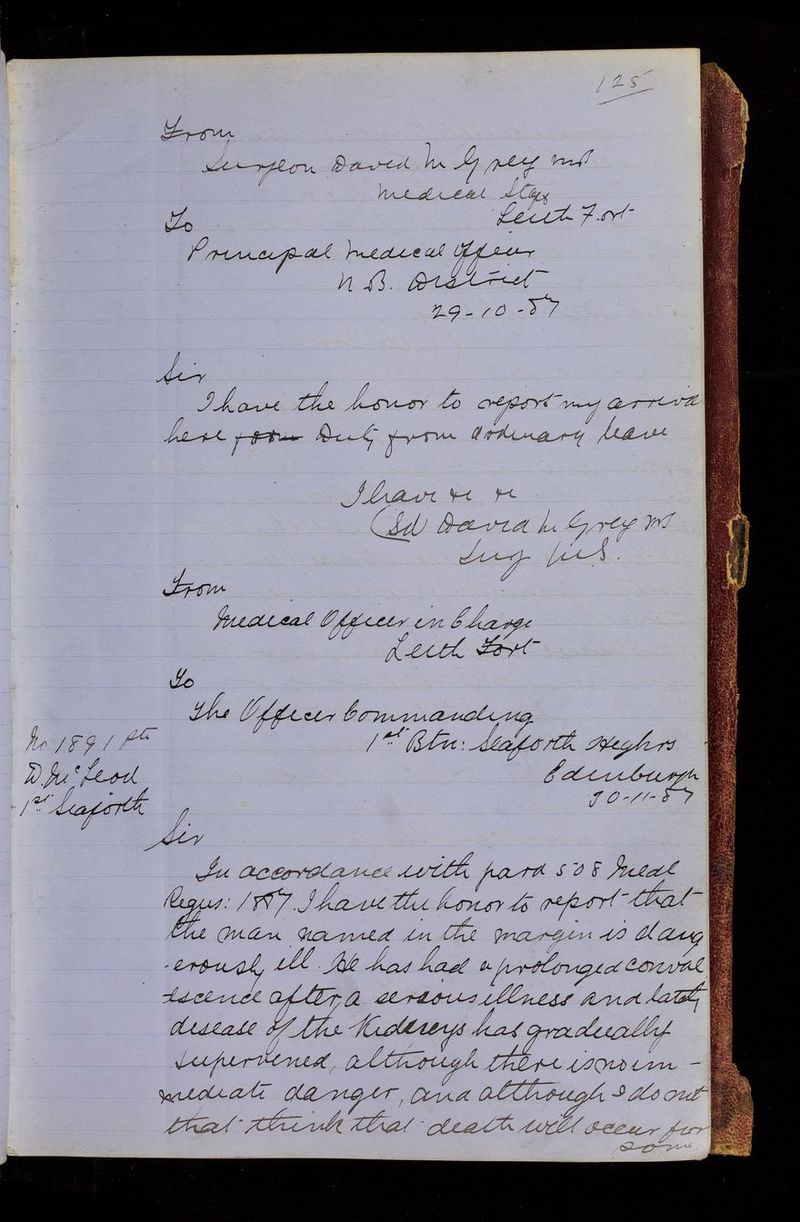 125
From
Surgeon David M Grey MB
Medical Staff
Leith Fort
To
Principal Medical Officer
N.B. District
29-10-87
Sir
I have the honor to report my arrival
here from Duty from ordinary leave
I have &c &c
(Sd) David M Grey MB
Surg M.S.
From
Medical Officer in Charge
Leith Fort
To
The Officer Commanding
1st Btn: Seaforth Highrs
Edinburgh
30-11-87
No 1891 Pte
D. McLeod
1st Seaforth
Sir
In accordance with para 508 Medl
Regns: 1887 I have the honor to report that
the man named in the margin is dang
-erously ill. He has had a prolonged conval
-escence after a serious illness and lately
disease of the Kidneys has gradually
supervened, although there is no im-
mediate danger, and although I do not
that think that death will occur for
some